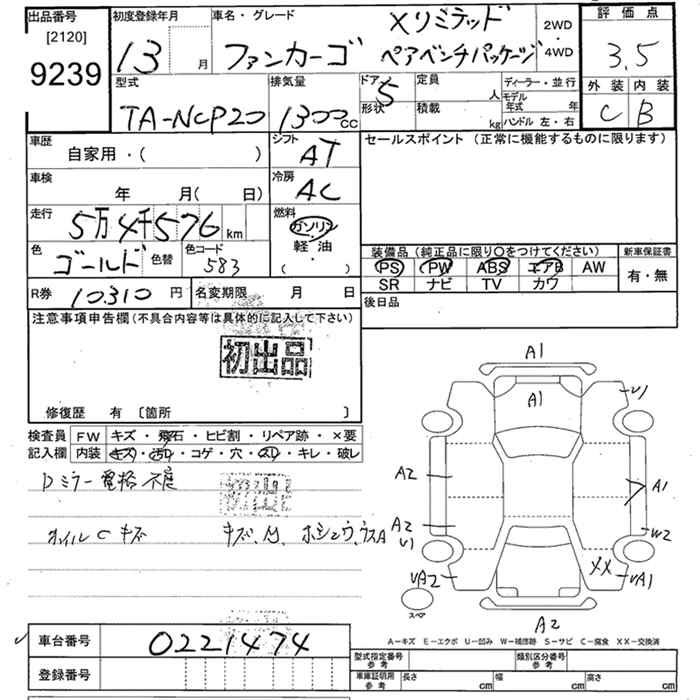 出品番号
[2120]
9239
初度登録年月
13 月
車名・グレード
Xリミテッド
ファンカーゴ ペアベンチパッケージ
2WD
・
4WD
評価点
3.5
外装 内装
C B
型式
TA-NCP20
排気量
1300cc
ドア 5
形状
定員
人
積載
kg
ディーラー・並行
モデル
年式 年
ハンドル 左・右
車歴
自家用・( )
シフト
AT
セールスポイント (正常に機能するものに限ります)
車検
年 月( 日)
冷房
AC
走行
5万4千576km
燃料
ガソリン
軽油
( )
色
ゴールド
色替
色コード
583
装備品(純正品に限り〇をつけてください)
新車保証書
PS PW ABS エアB AW
SR ナビ TV カワ
有・無
R券 10310円
名変期限 月 日
後日品
注意事項申告欄(不具合内容等は具体的に記入して下さい)
初出品
修復歴 有 [箇所 ]
検査員
記入欄
FW キズ・飛石・ヒビ割・リペア跡・×要
内装 キズ・汚れ・コゲ・穴・スレ・キレ・破レ
Dミラー電格不良
ホイルCキズ
A1
A1
U1
A2
A1
A2
U1
W2
UA2
XX
UA1
A2
スペア
A-キズ E-エクボ U-凹み W-補修跡 S-サビ C-腐食 XX-交換済
車台番号
0221474
登録番号
型式指定番号
参考
類別区分番号
参考
車庫証明用
参考
長さ cm
幅 cm
高さ cm